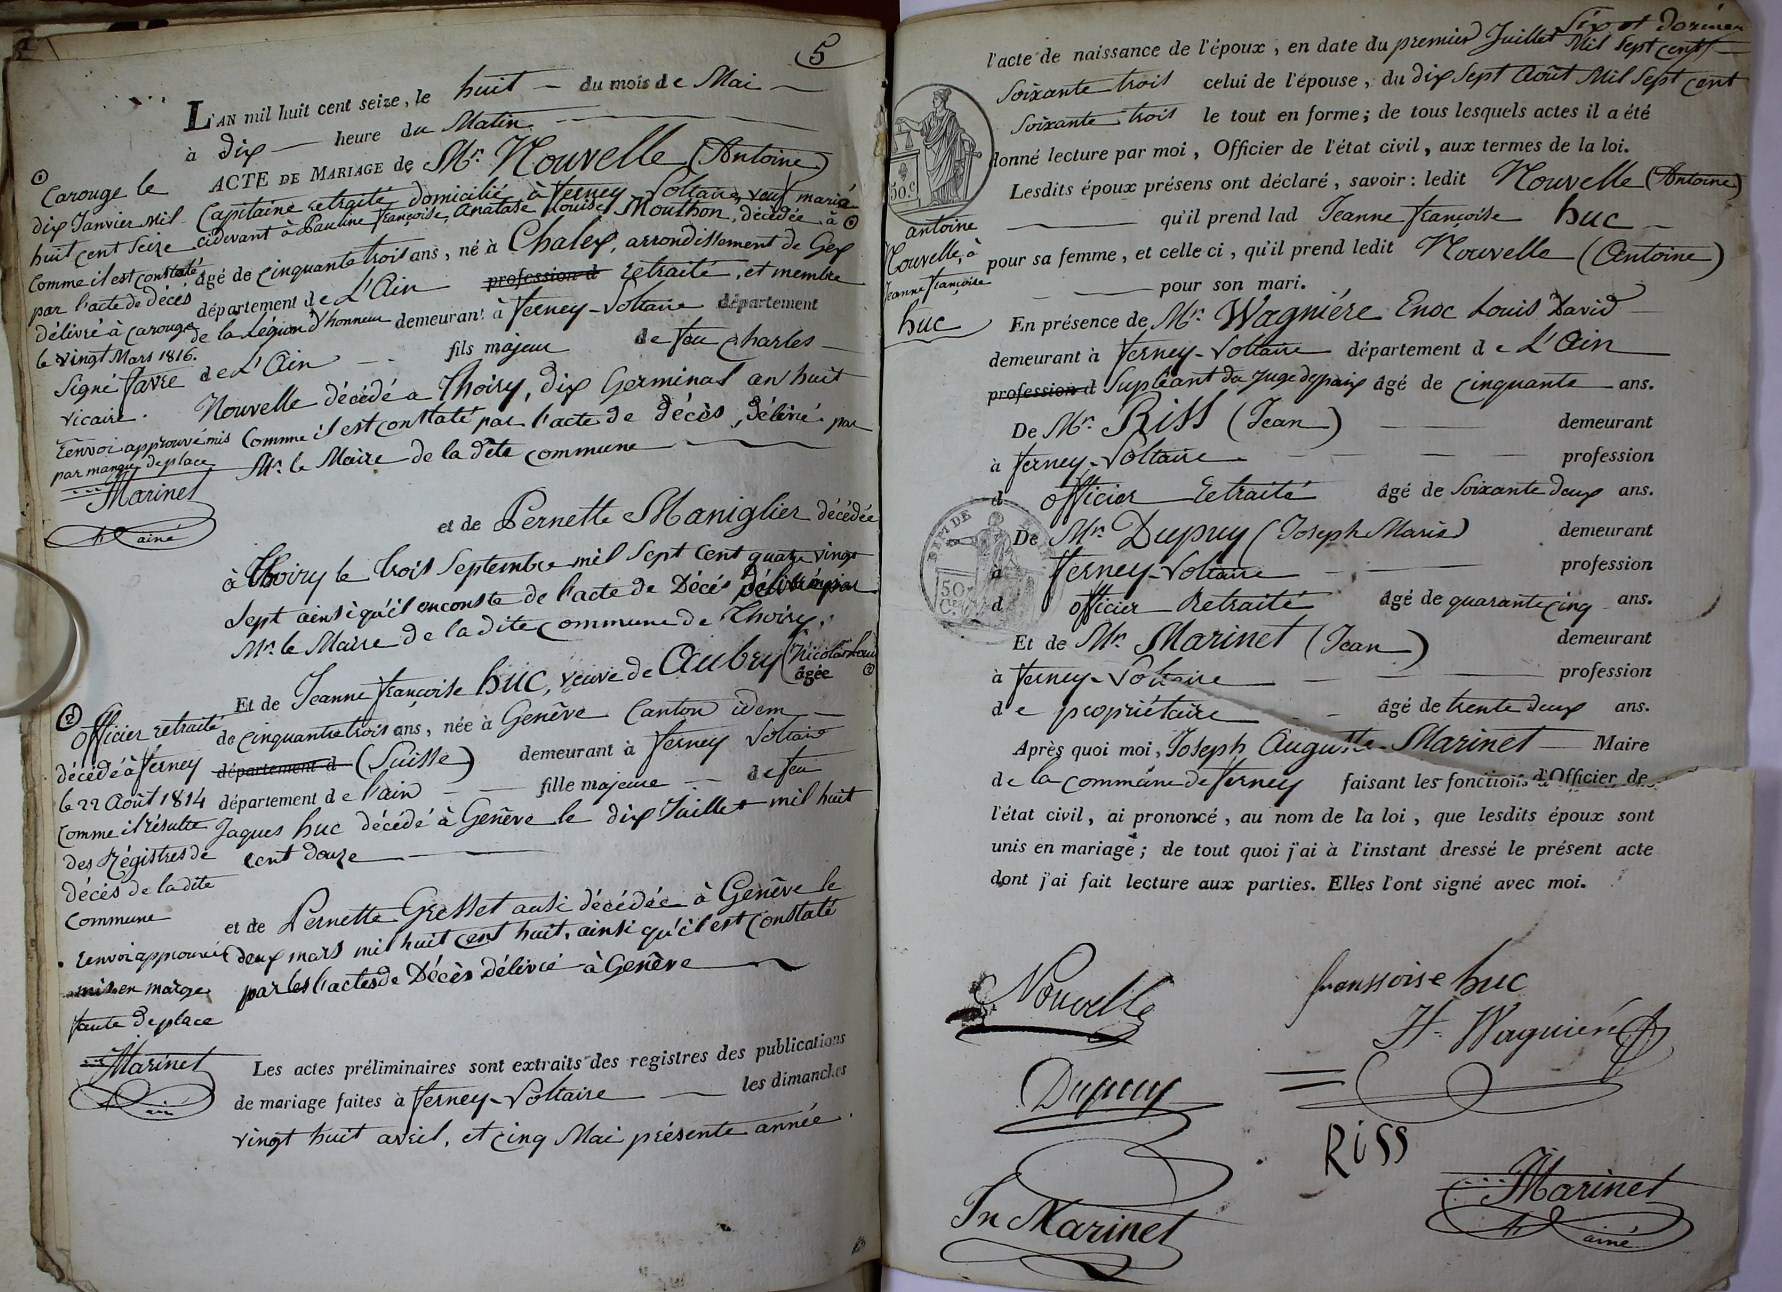 5
L'AN mil huit cent seize, le huit du mois de Mai
à dix heure du Matin
ACTE DE MARIAGE de Mr. Nouvelle (Antoine)
Capitaine retraité domicilié à ferney Voltaire, veuf marié
cidevant à Pauline françoise, Anatase Louise Mouthon, décédée à ①
âgé de cinquante trois ans, né à Chalex, arrondissement de Gex
département de L'Ain profession d retraité, et membre
de la Légion d'honneur demeurant à ferney-Voltaire département
de L'Ain fils majeur de feu Charles
Nouvelle décédé a Thoiry, dix Germinal an huit
Comme il est constaté par l'acte de décès, délivré par
Mr. le Maire de la dite commune
et de Pernette Maniglier décédée
à Thoiry le trois Septembre mil Sept Cent quatre vingt
Sept ainsi qu'il en conste de l'acte de Décès délivré par
Mr. le Maire de la dite Commune de Thoiry.
Et de Jeanne françoise huc, veuve de Aubry (Nicolas
âgée ②
de cinquante trois ans, née à Genêve Canton idem
département d (Suisse) demeurant à ferney Voltaire
département de l'ain fille majeure de feu
Jaques huc décédé à Genêve le dix Juillet mil huit
cent douze
et de Pernette Gresset aussi décédée à Genêve le
deux mars mil huit cent huit, ainsi qu'il est constaté
par les l'actes de Décès délivré à Genêve
Les actes préliminaires sont extraits des registres des publications
de mariage faites à ferney-Voltaire les dimanches
vingt huit avril, et cinq Mai présente année.
①
Carouge le
dix Janvier mil
huit cent Seize
Comme il est constaté
par l'acte de décès
délivré à Carouge
le vingt Mars 1816.
Signé favre
vicaire.
renvoi approuvé mis
par manque de place
Marinet
ainé
②
officier retraité
décédé à ferney
le 22 Août 1814
comme il résulte
des Régistres de
décès de la dite
Commune
renvoi approuvé
mis en marge
faute de place
Marinet
ainé
Six et dernier
l'acte de naissance de l'époux, en date du premier Juillet Mil Sept cent
Soixante trois celui de l'épouse, du dix Sept Août Mil Sept cent
Soixante trois le tout en forme; de tous lesquels actes il a été
donné lecture par moi, Officier de l'état civil, aux termes de la loi.
Lesdits époux présens ont déclaré, savoir: ledit Nouvelle (Antoine)
qu'il prend lad Jeanne françoise huc
pour sa femme, et celle ci, qu'il prend ledit Nouvelle (Antoine)
pour son mari.
En présence de Mr. Wagnière Enoc Louis David
demeurant à ferney-Voltaire département de L'Ain
profession d Supléant du Juge de paix âgé de cinquante ans.
De Mr. Riss (Jean) demeurant
à ferney-Voltaire profession
d officier Retraité âgé de Soixante deux ans.
De Mr. Dupuy (Joseph Marie) demeurant
à ferney-Voltaire profession
d officier Retraité âgé de quarante cinq ans.
Et de Mr. Marinet (Jean) demeurant
à ferney-Voltaire profession
de propriétaire âgé de trente deux ans.
Après quoi moi, Joseph Auguste Marinet Maire
de la commune de ferney faisant les fonctions d'Officier de
l'état civil, ai prononcé, au nom de la loi, que lesdits époux sont
unis en mariage; de tout quoi j'ai à l'instant dressé le présent acte
dont j'ai fait lecture aux parties. Elles l'ont signé avec moi.
50.c
antoine
Nouvelle, à
Jeanne françoise
huc
50
C.
Nouvelle
franssoise huc
H. Wagnière
Dupuy
Riss
Jn Marinet
Marinet
ainé